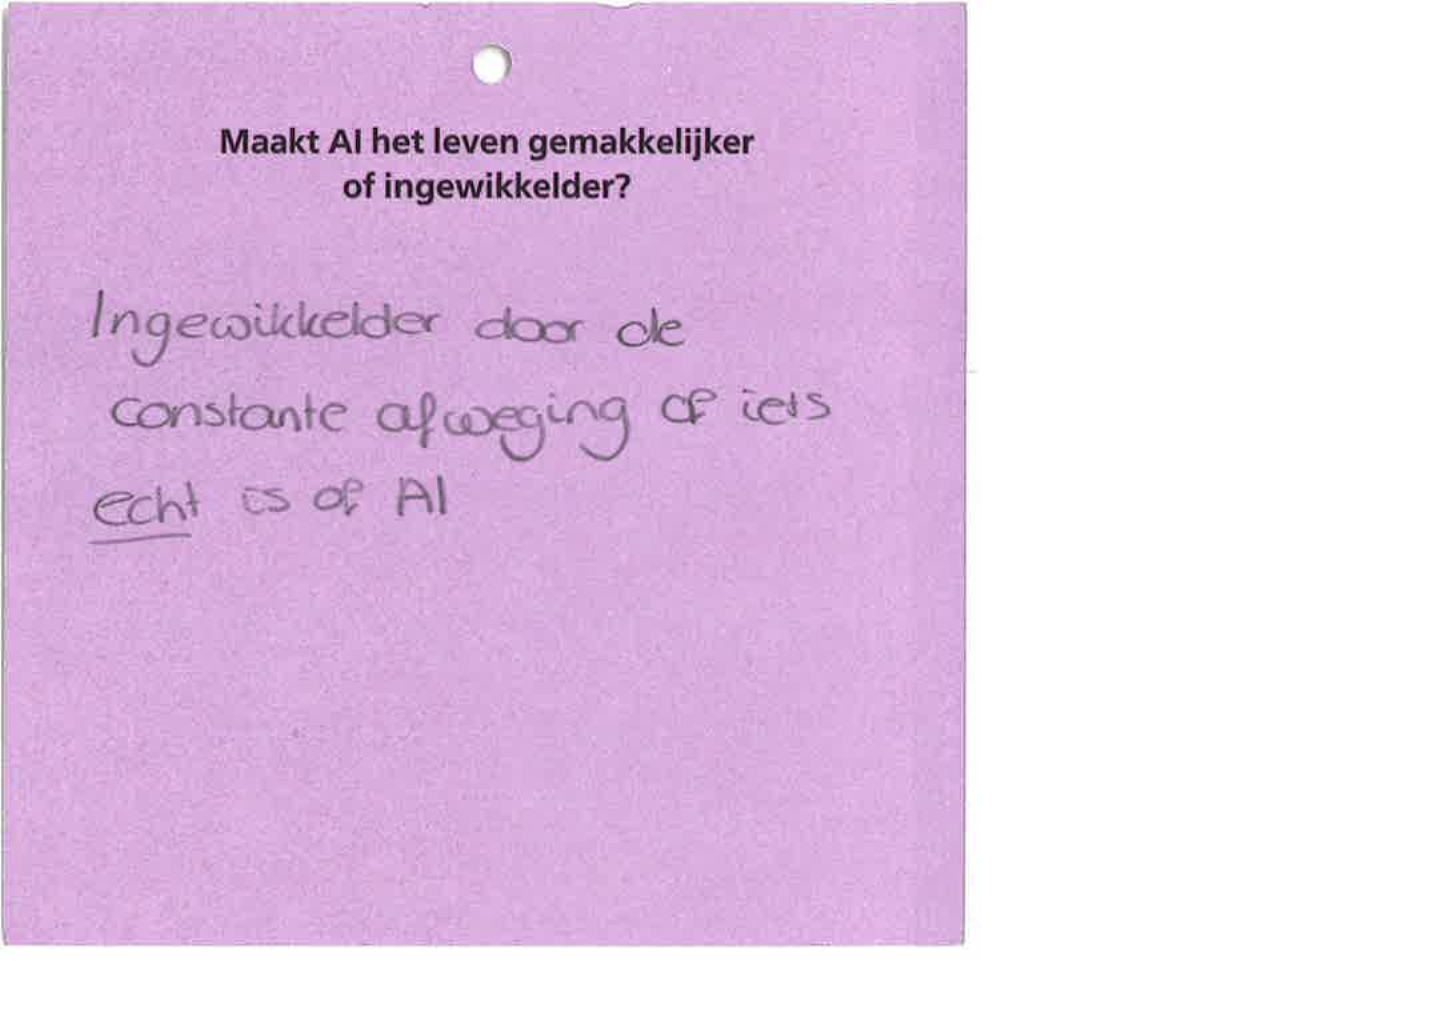 Maakt AI het leven gemakkelijker
of ingewikkelder?
Ingewikkelder door de
constante afweging of iets
echt is of AI